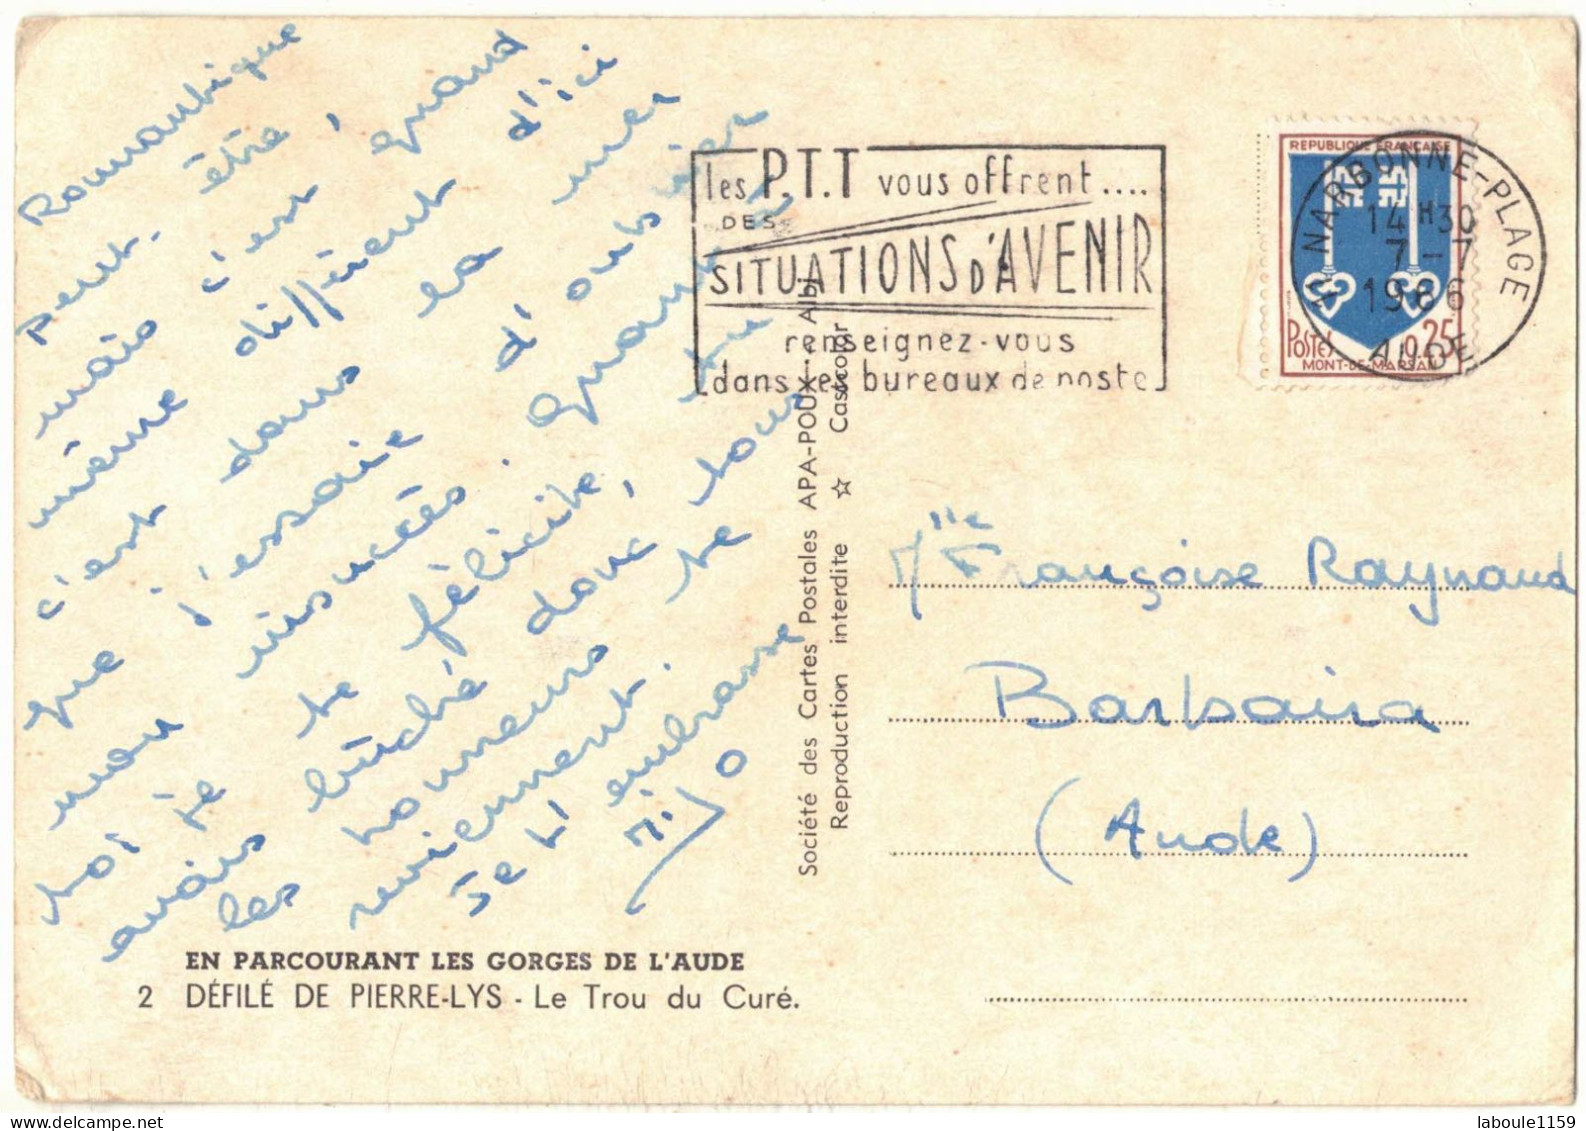 Romantique
peut-être,
mais c'est, quand
même différent d'ici
c'est dans la mer
que j'essaie d'oublier
mon insuccès. Quant à
toi je te félicite, tu
avais bûché donc tous
les honneurs te
reviennent.
Je t'embrasse
les P.T.T vous offrent....
DES
SITUATIONS D'AVENIR
renseignez-vous
dans les bureaux de poste
REPUBLIQUE FRANÇAISE
POSTES 0,25
MONT-DE-MARSAN
NARBONNE-PLAGE
14H30
7-7
1966
AUDE
Société des Cartes Postales APA-POUX - Albi
Reproduction interdite ☆ Castcolor
Mlle Françoise Raynaud
Barbaira
(Aude)
EN PARCOURANT LES GORGES DE L'AUDE
2 DÉFILÉ DE PIERRE-LYS - Le Trou du Curé.
laboule1159